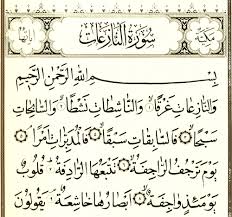 مكية سورة النازعات آياتها
بِسْمِ اللَّهِ الرَّحْمَٰنِ الرَّحِيمِ
وَالنَّازِعَاتِ غَرْقًا وَالنَّاشِطَاتِ نَشْطًا وَالسَّابِحَاتِ
سَبْحًا فَالسَّابِقَاتِ سَبْقًا فَالْمُدَبِّرَاتِ أَمْرًا
يَوْمَ تَرْجُفُ الرَّاجِفَةُ تَتْبَعُهَا الرَّادِفَةُ قُلُوبٌ
يَوْمَئِذٍ وَاجِفَةٌ أَبْصَارُهَا خَاشِعَةٌ يَقُولُونَ